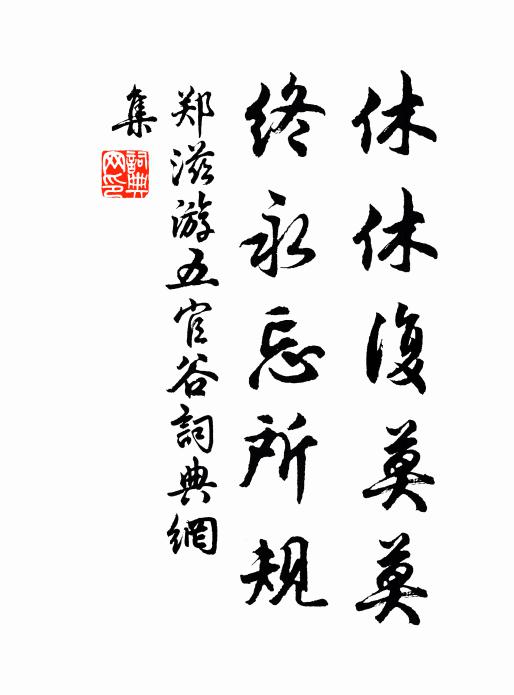 休休復莫莫
終永忘所規
郑滋游五官谷詞典網
集
詞典
网印